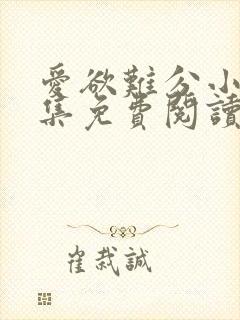 愛欲難分小
集免費閱讀
崔裁誠